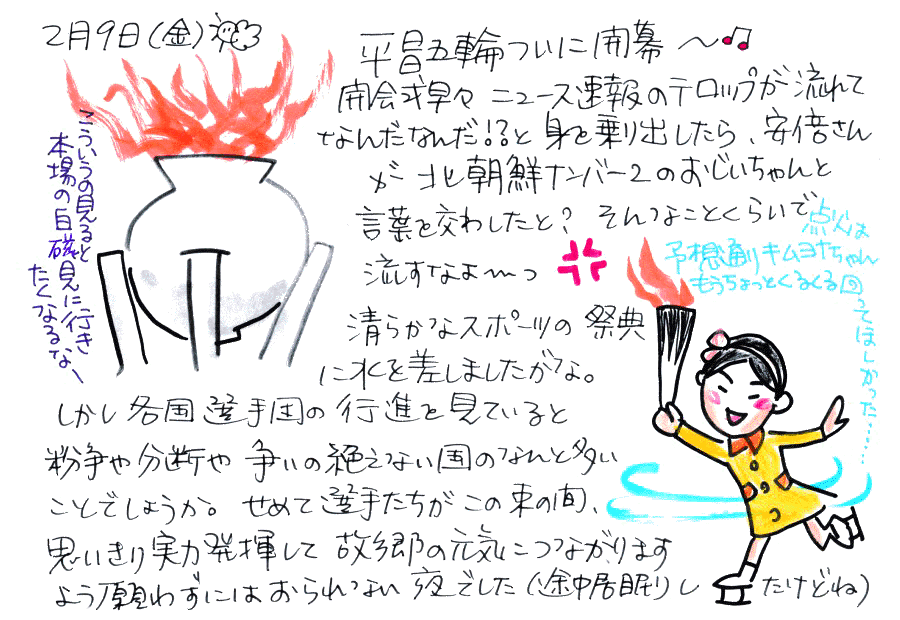 2月9日(金)
平昌五輪ついに開幕 〜♫
開会式早々 ニュース速報のテロップが流れて
なんだなんだ!?と身を乗り出したら、安倍さん
が北朝鮮ナンバー2のおじいちゃんと
言葉を交わしたと? そんなことくらいで
流すなよ〜っ
清らかなスポーツの祭典
に水を差しましたがな。
しかし各国選手団の行進を見ていると
紛争や分断や争いの絶えない国のなんと多い
ことでしょうか。せめて選手たちがこの束の間、
思いきり実力発揮して故郷の元気につながります
よう願わずにはおられない夜でした(途中居眠りしたけどね)
こういうの見ると
本場の白磁見に行き
たくなるなー
点火は
予想通りキムヨナちゃん
もうちょっとくるくる回
ってほしかった……